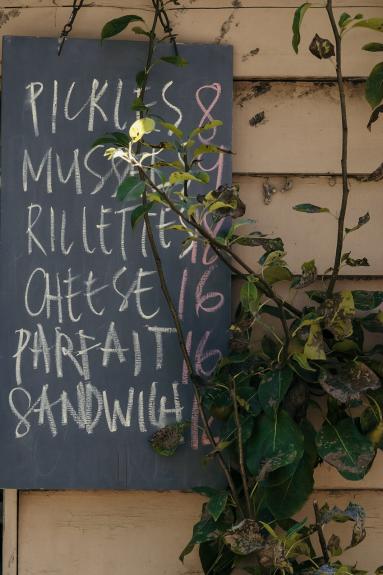 PICKLES 8
MUSSELS 9
RILLETTES 16
CHEESE 16
PARFAIT 16
SANDWICH